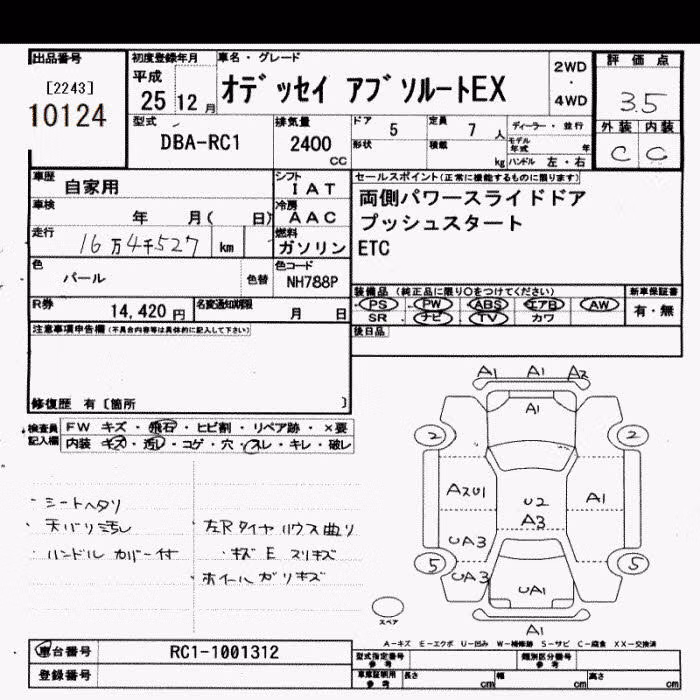 出品番号 初度登録年月 車名・グレード 2WD ・ 4WD 評価点
[2243] 平成 25 12 月 オデッセイ アブソルートEX 3.5
10124 型式 DBA-RC1 排気量 2400 CC ドア 5 定員 7 人 ディーラー・並行 外装 内装
形状 積載 kg モデル年式 年 ハンドル 左・右 C C
車歴 自家用 シフト IAT セールスポイント(正常に機能するものに限ります)
車検 年 月( 日) 冷房 AAC 両側パワースライドドア
走行 16万4千527 km 燃料 ガソリン プッシュスタート
ETC
色 パール 色替 色コード NH788P 装備品(純正品に限り○をつけてください) 新車保証書
PS PW ABS エアB AW 有・無
R券 14,420 円 名変通知期限 月 日 SR ナビ TV カワ
注意事項申告欄(不具合内容等は具体的に記入して下さい) 後日品
修復歴 有〔箇所 〕
検査員記入欄 FW キズ・飛石・ヒビ割・リペア跡・×要
内装 キズ・汚レ・コゲ・穴・スレ・キレ・破レ
・シートヘタリ
・天バリ汚レ ・左Rタイヤハウス曲り
・ハンドルカバー付 ・キズ E スリキズ
・ホイールガリキズ
A1 A1 A2
A1
2 2
A2U1 U2 A1
A3
UA3
5 UA3 UA1 5
スペア A1
A-キズ E-エクボ U-凹み W-補修跡 S-サビ C-腐食 XX-交換済
車台番号 RC1-1001312 型式指定番号 参考 類別区分番号 参考
登録番号 車庫証明用 参考 長さ cm 幅 cm 高さ cm